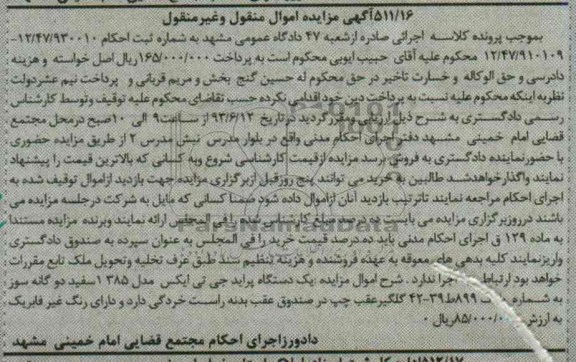 ۵۱۱/۱۶آگهی مزایده اموال منقول وغیرمنقول
بموجب پرونده کلاسه اجرائی صادره ازشعبه ۴۷ دادگاه عمومی مشهد به شماره ثبت احکام ۱۲/۴۷/۹۳۰۰۱۰-
۱۲/۴۷/۹۱-۱۰۹ محکوم علیه آقای حبیب ایوبی محکوم است به پرداخت ۱۶۵/۰۰۰/۰۰۰ریال اصل خواسته و هزینه
دادرسی و حق الوکاله و خسارت تاخیر در حق محکوم له حسین گنج بخش و مریم قربانی و پرداخت نیم عشردولت
نظربه اینکه محکوم علیه نسبت به پرداخت دین خود اقدامی نکرده حسب تقاضای محکوم علیه توقیف وتوسط کارشناس
رسمی دادگستری به شرح ذیل ارزیابی ومقررگردید درتاریخ ۹۳/۶/۱۳ از ساعت۹ الی ۱۰صبح درمحل مجتمع
قضایی امام خمینی مشهد دفتر اجرای احکام مدنی واقع در بلوار مدرس نبش مدرس ۲ از طریق مزایده حضوری
با حضورنماینده دادگستری به فروش برسد مزایده ازقیمت کارشناسی شروع وبه کسانی که بالاترین قیمت را پیشنهاد
نمایند واگذارخواهدشد طالبین به خرید می توانند پنج روزقبل ازبرگزاری مزایده جهت بازدید ازاموال توقیف شده به
اجرای احکام مراجعه نمایند تاترتیب بازدید آنان ازاموال داده شود ضمنا کسانی که مایل به شرکت درجلسه مزایده می
باشند درروزبرگزاری مزایده می بایست ده درصد مبلغ کارشناسی شده را فی المجلس ارائه نمایند وبرنده مزایده مستندا
به ماده ۱۲۹ ق اجرای احکام مدنی باید ده درصد قیمت خرید را فی المجلس به عنوان سپرده به صندوق دادگستری
واریزنمایند کلیه بدهی های معوقه به عهده فروشنده و هزینه تنظیم سند طبق عرف تخلیه وتحویل ملک تابع مقررات
خواهد بود اجرا ندارد . شرح اموال مزایده :یک دستگاه پراید جی تی ایکس مدل ۱۳۸۵سفید دو گانه سوز
به شماره ۸۹۹ط۳۹-۴۲ گلگیرعقب چپ در صندوق عقب بدنه راست خردگی دارد و دارای رنگ غیر فابریک
به ارزش ۸۵/۰۰۰/۰۰۰ریال
دادورزاجرای احکام مجتمع قضایی امام خمینی مشهد